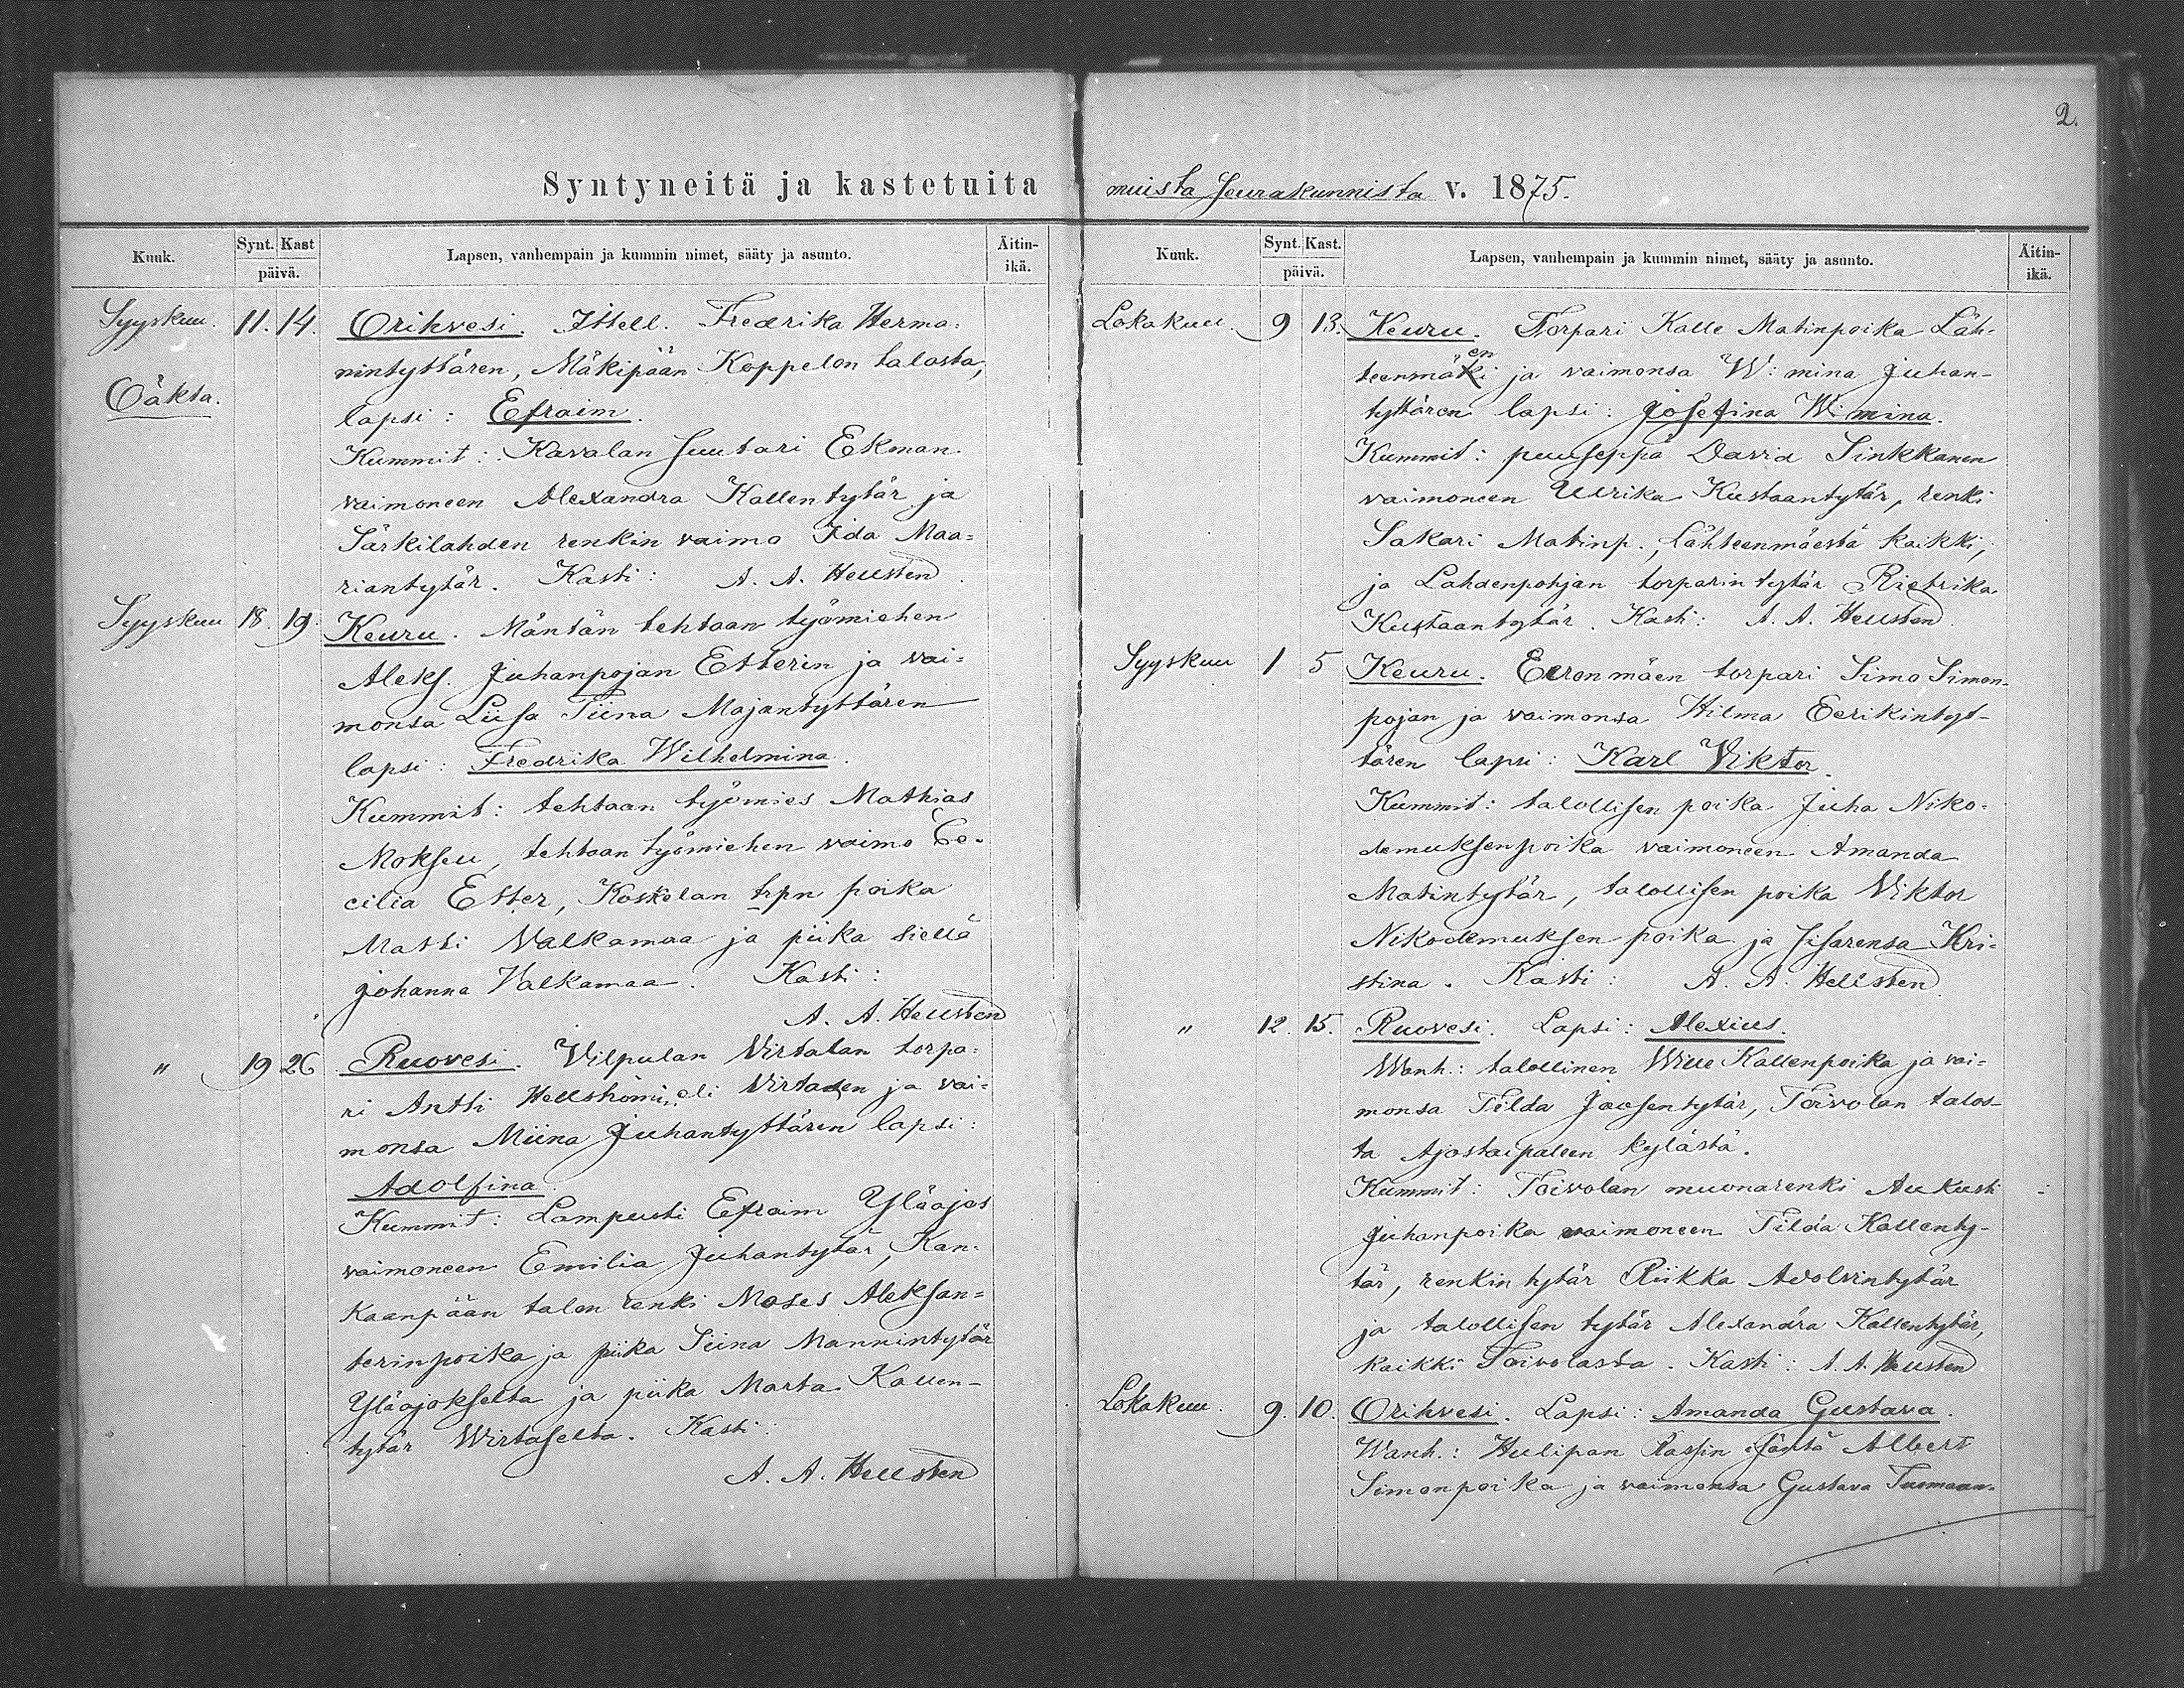 2.
Syntyneitä ja kastetuita muista seurakunnista v. 1875.
Kuuk. Synt. Kast päivä. Lapsen, vanhempain ja kummin nimet, sääty ja asunto. Äitin-ikä.
Syyskuu. 11. 14. Orihvesi. Ittell. Fredrika Herma-
nintyttären, Mäkipään Koppelon talosta,
Oäkta.
lapsi: Efraim.
Kummit: Kavalan suutari Ekman
vaimoneen Alexandra Kallentytär ja
Särkilahden renkin vaimo Ida Maa-
riantytär. Kasti: A. A. Hellsten
Syyskuu 18. 19. Keuru. Mäntän tehtaan työmiehen
Aleks. Juhanpojan Esterin ja vai-
monsa Liisa Tiina Majantyttären
lapsi: Fredrika Wilhelmina.
Kummit: tehtaan työmies Mathias
Mokseu, tehtaan työmiehen vaimo Ce-
cilia Ester, Koskelan trpn poika
Matti Valkamaa ja piika siellä
Johanna Valkamaa. Kasti:
A. A. Hellsten
" 19 26 Ruovesi. Vilpulan Virtalan torpa-
ri Antti Hellströmin eli Virtasen ja vai-
monsa Miina Juhantyttären lapsi:
Adolfina.
Kummit: Lampuoti Efraim Yläajos
vaimoneen Emilia Juhantytär, Kan-
kaanpään talon renki Moses Aleksan-
terinpoika ja piika Siina Mannintytär
Yläajokselta ja piika Marta Kallen-
tytär Wirtaselta. Kasti:
A. A. Hellsten
Kuuk. Synt. Kast. päivä. Lapsen, vanhempain ja kummin nimet, sääty ja asunto. Äitin-ikä.
Lokakuu. 9 13. Keuru. Torpari Kalle Matinpoika Läh-
teenmäen ja vaimonsa W:mina Juhan-
tyttären lapsi: Josefina W:mina.
Kummit: puuseppä David Sinkkanen
vaimoneen Ulrika Kustaantytär, renki
Sakari Matinp., Lähteenmäestä kaikki,
ja Lahdenpohjan torparin tytär Rietrika
Kustaantytär. Kasti: A. A. Hellsten.
Syyskuu 1 5 Keuru. Eeronmäen torpari Simo Simon-
pojan ja vaimonsa Hilma Eerikintyt-
tären lapsi: Karl Viktor.
Kummit: talollisen poika Juha Niko-
demuksenpoika vaimoneen Amanda
Matintytär, talollisen poika Viktor
Nikodemuksen poika ja sisarensa Kri-
stina. Kasti: A. A. Hellsten
" 12. 15. Ruovesi. Lapsi: Alexius.
Wanh.: talollinen Wille Kallenpoika ja vai-
monsa Tilda Joosentytär, Toivolan talos-
ta Ajostaipaleen kylästä.
Kummit: Toivolan muonarenki Aukusti
Juhanpoika vaimoneen Tilda Kallenty-
tär, renkin tytär Riikka Adolvintytär
ja talollisen tytär Alexandra Kallentytär,
kaikki Toivolasta. Kasti: A. A. Hellsten
Lokakuu. 9. 10. Orihvesi. Lapsi: Amanda Gustava.
Wanh.: Hulipan Rassin isäntä Albert
Simonpoika ja vaimonsa Gustava Tuomaan-